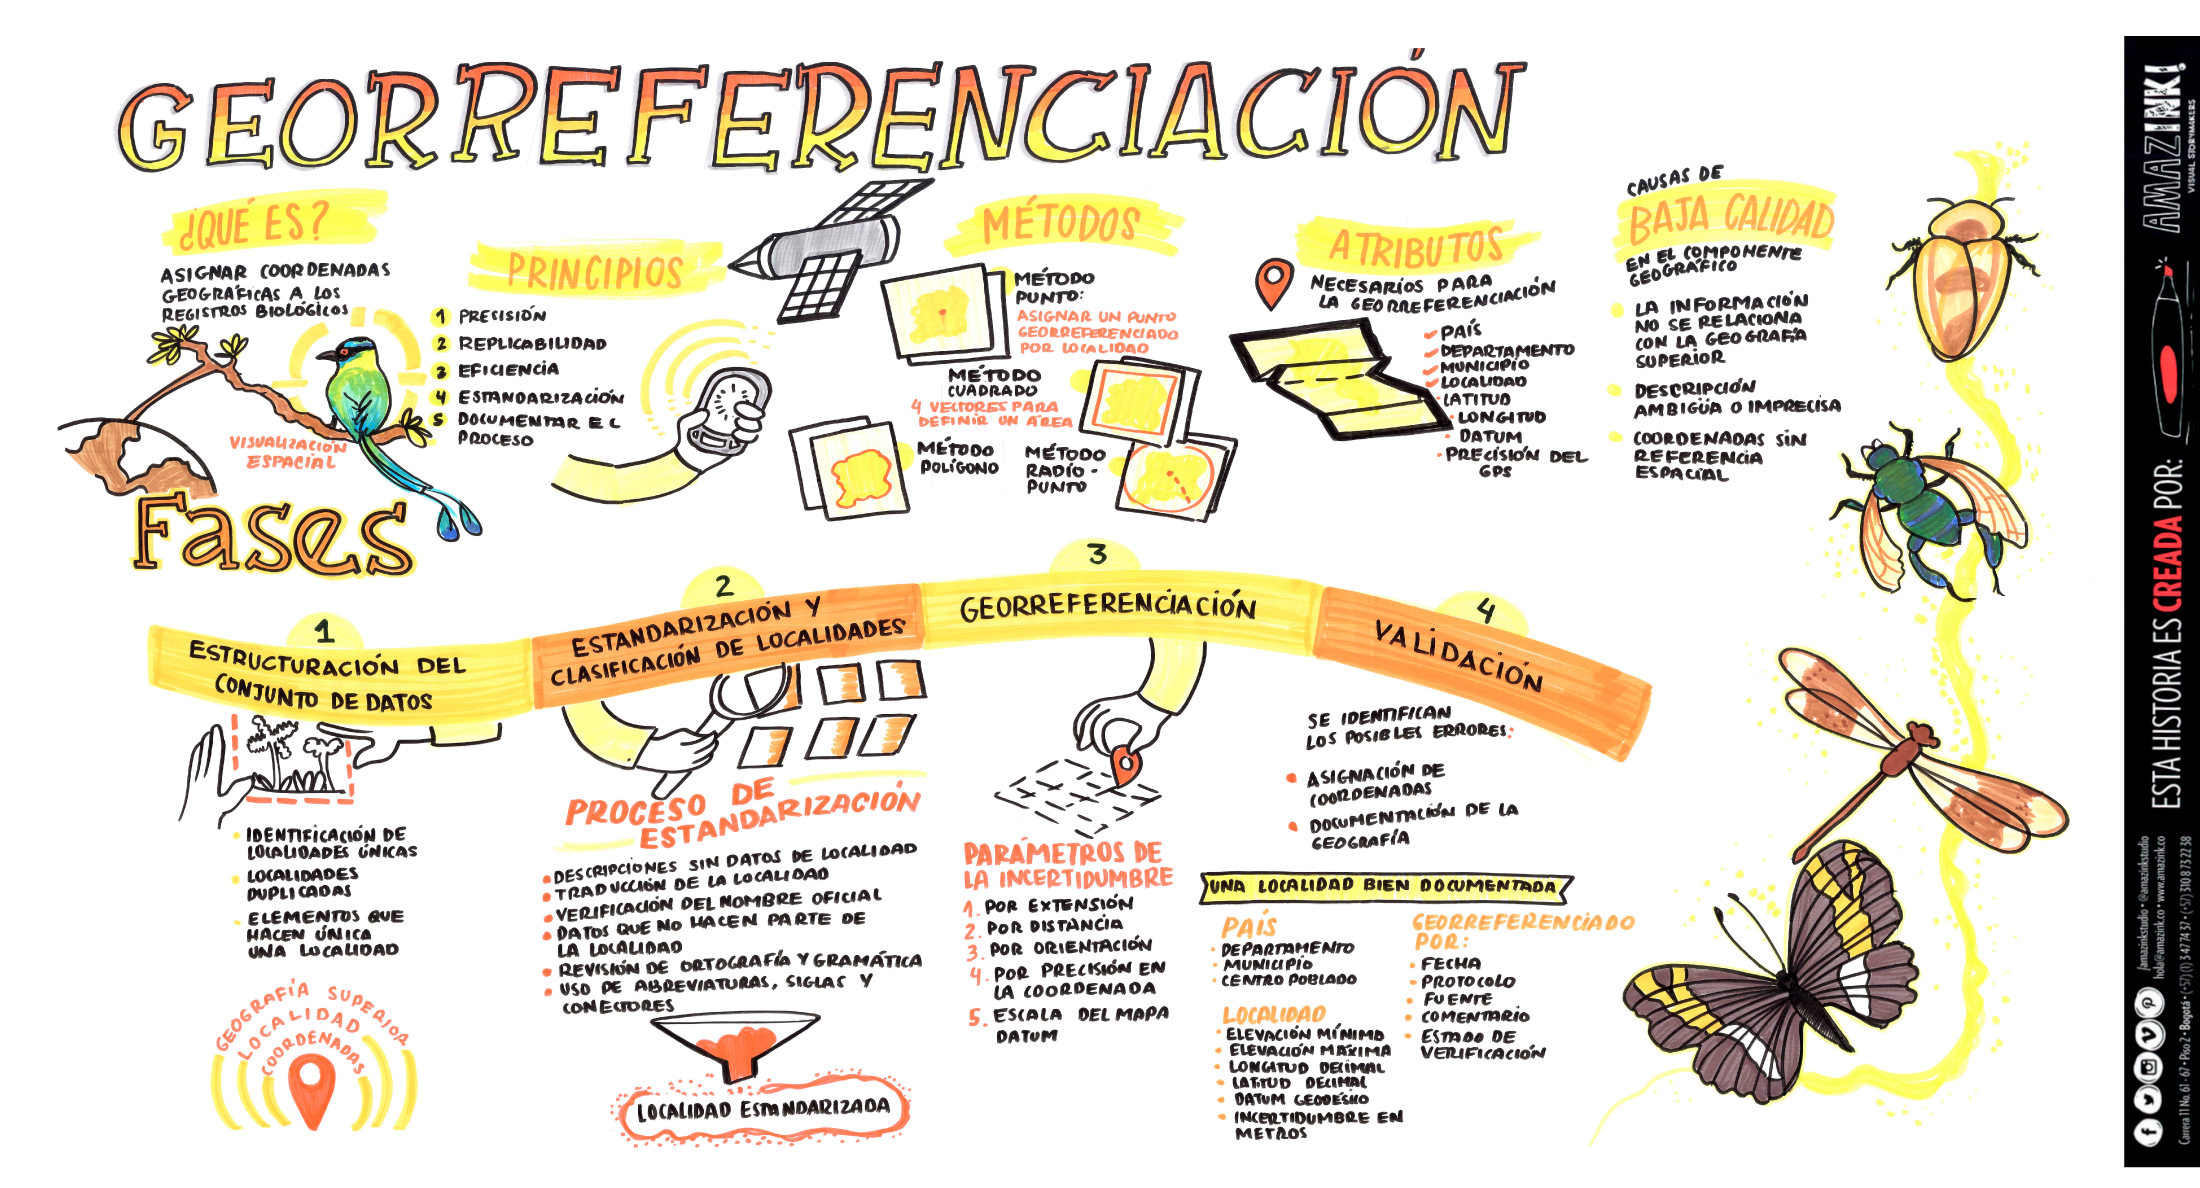 GEORREFERENCIACIÓN
¿QUÉ ES?
ASIGNAR COORDENADAS
GEOGRÁFICAS A LOS
REGISTROS BIOLÓGICOS
VISUALIZACIÓN
ESPACIAL
PRINCIPIOS
1 PRECISIÓN
2 REPLICABILIDAD
3 EFICIENCIA
4 ESTANDARIZACIÓN
5 DOCUMENTAR EL
PROCESO
MÉTODOS
MÉTODO
PUNTO:
ASIGNAR UN PUNTO
GEORREFERENCIADO
POR LOCALIDAD
MÉTODO
CUADRADO
4 VECTORES PARA
DEFINIR UN ÁREA
MÉTODO
POLÍGONO
MÉTODO
RADIO-
PUNTO
ATRIBUTOS
NECESARIOS PARA
LA GEORREFERENCIACIÓN
PAÍS
DEPARTAMENTO
MUNICIPIO
LOCALIDAD
LATITUD
LONGITUD
DATUM
PRECISIÓN DEL
GPS
CAUSAS DE
BAJA CALIDAD
EN EL COMPONENTE
GEOGRÁFICO
LA INFORMACIÓN
NO SE RELACIONA
CON LA GEOGRAFÍA
SUPERIOR
DESCRIPCIÓN
AMBIGÜA O IMPRECISA
COORDENADAS SIN
REFERENCIA
ESPACIAL
Fases
1
ESTRUCTURACIÓN DEL
CONJUNTO DE DATOS
IDENTIFICACIÓN DE
LOCALIDADES ÚNICAS
LOCALIDADES
DUPLICADAS
ELEMENTOS QUE
HACEN ÚNICA
UNA LOCALIDAD
GEOGRAFÍA SUPERIOR
LOCALIDAD
COORDENADAS
2
ESTANDARIZACIÓN Y
CLASIFICACIÓN DE LOCALIDADES
PROCESO DE
ESTANDARIZACIÓN
DESCRIPCIONES SIN DATOS DE LOCALIDAD
TRADUCCIÓN DE LA LOCALIDAD
VERIFICACIÓN DEL NOMBRE OFICIAL
DATOS QUE NO HACEN PARTE DE
LA LOCALIDAD
REVISIÓN DE ORTOGRAFÍA Y GRAMÁTICA
USO DE ABREVIATURAS, SIGLAS Y
CONECTORES
LOCALIDAD ESTANDARIZADA
3
GEORREFERENCIACIÓN
PARÁMETROS DE
LA INCERTIDUMBRE
1. POR EXTENSIÓN
2. POR DISTANCIA
3. POR ORIENTACIÓN
4. POR PRECISIÓN EN
LA COORDENADA
5. ESCALA DEL MAPA
DATUM
4
VALIDACIÓN
SE IDENTIFICAN
LOS POSIBLES ERRORES:
ASIGNACIÓN DE
COORDENADAS
DOCUMENTACIÓN DE LA
GEOGRAFÍA
UNA LOCALIDAD BIEN DOCUMENTADA
PAÍS
DEPARTAMENTO
MUNICIPIO
CENTRO POBLADO
LOCALIDAD
ELEVACIÓN MÍNIMA
ELEVACIÓN MÁXIMA
LONGITUD DECIMAL
LATITUD DECIMAL
DATUM GEODÉSICO
INCERTIDUMBRE EN
METROS
GEORREFERENCIADO
POR:
FECHA
PROTOCOLO
FUENTE
COMENTARIO
ESTADO DE
VERIFICACIÓN
AMAZINK!
VISUAL STORYMAKERS
ESTA HISTORIA ES CREADA POR:
/amazinkstudio • @amazinkstudio
hola@amazink.co • www.amazink.co
Carrera 11 No. 61 - 67 Piso 2 • Bogotá • (+57) (1) 347 74 37 • (+57) 310 873 22 38